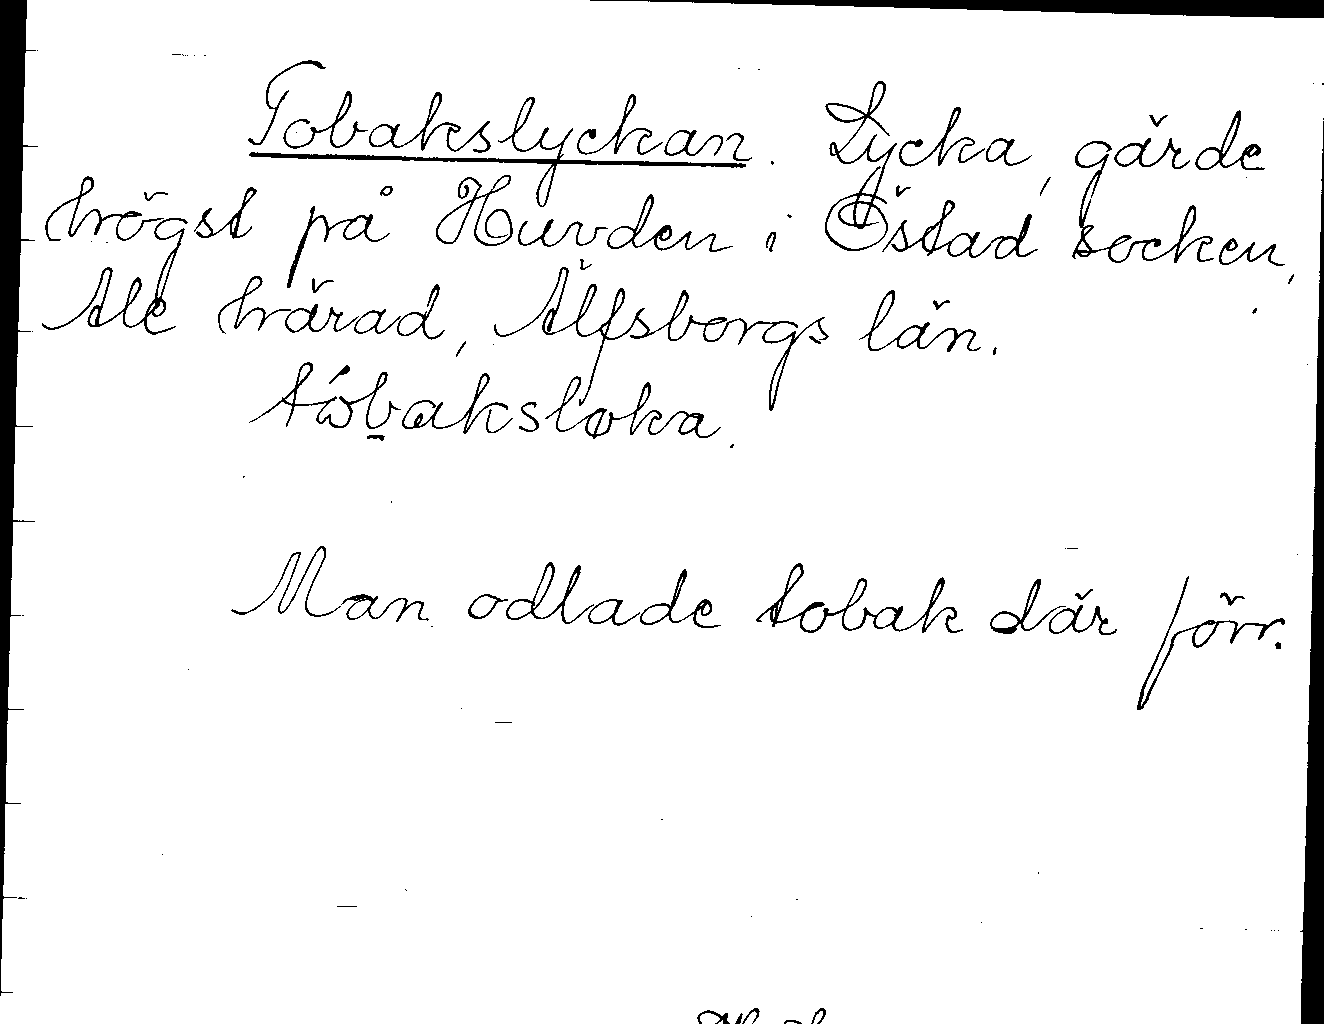 Tobakslyckan. Lycka, gärde
högst på Huvden i Östad socken,
Ale härad, Älfsborgs län.
tóbaksløka.
Man odlade tobak där förr.